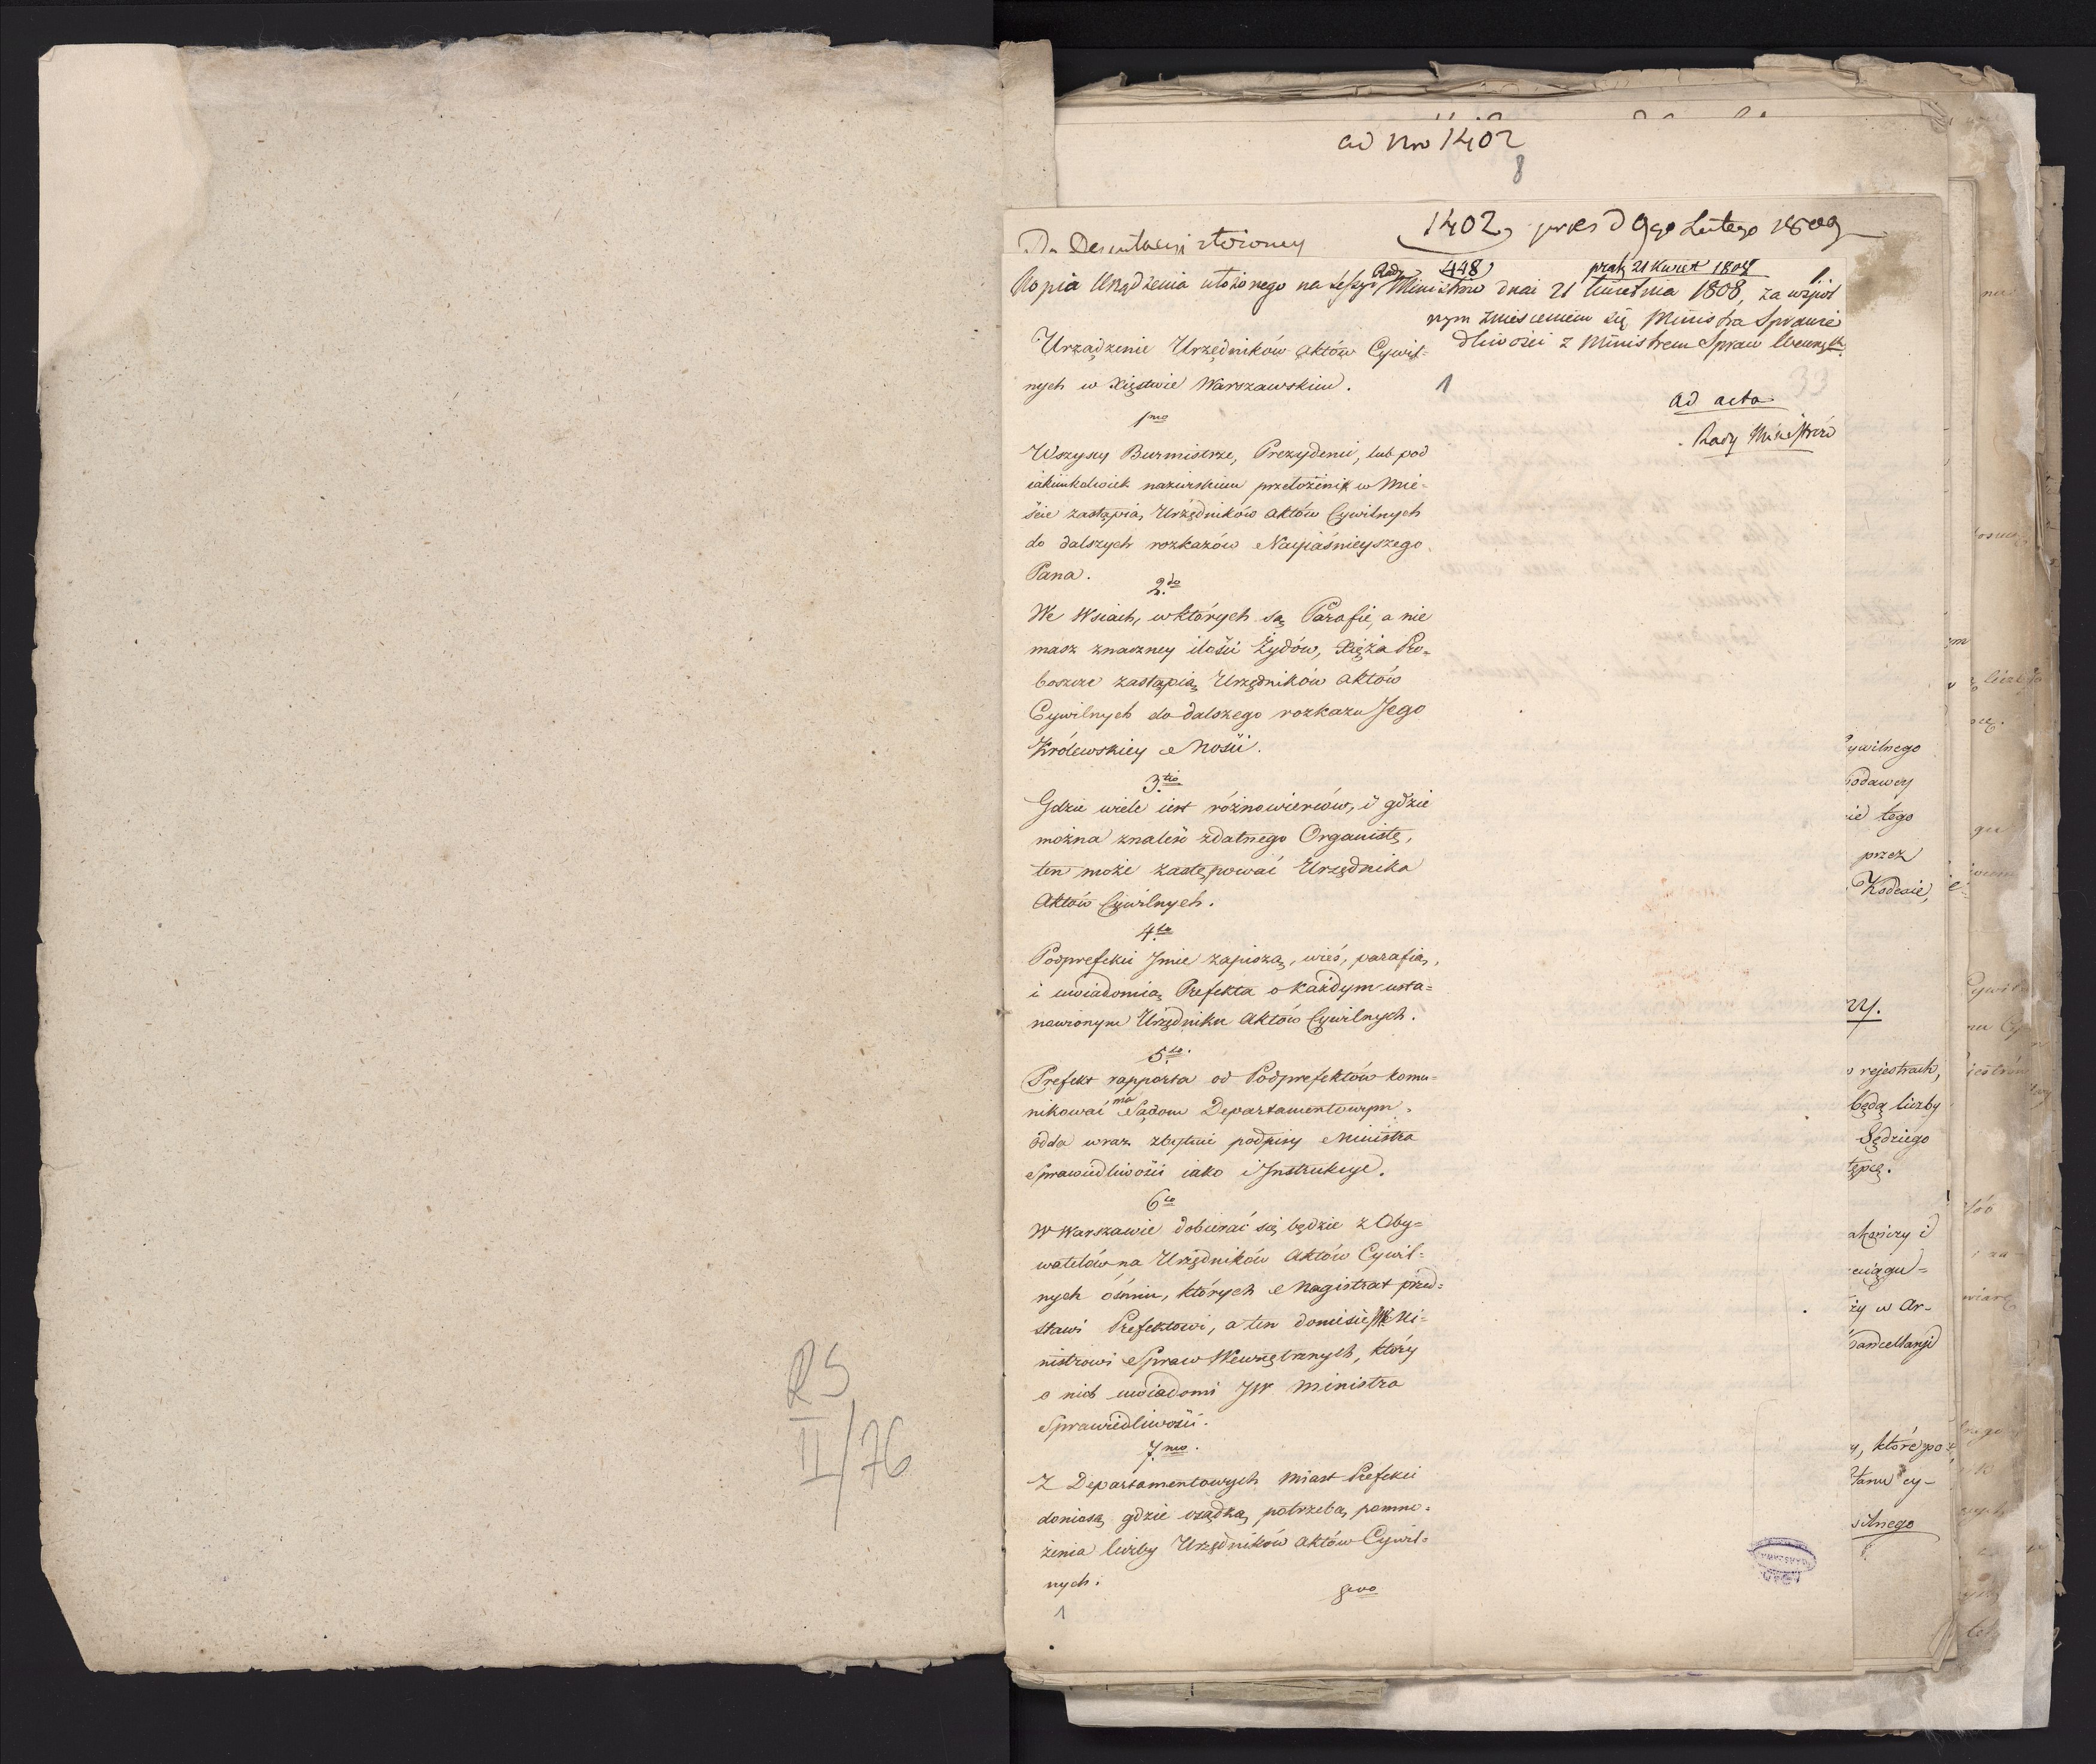 ad Nro 1402
8
1402 pres d 9go Lutego 1809
Do Deputacyi
448 prod. 21 Kwiet 1808
Kopia Urządzenia ułożonego na Sessyi Rady Ministrów dnia 21 kwietnia 1808, za wspól
nym zniesieniem się Ministra Sprawie
dliwości z Ministrem Spraw Wewnętr.
Urządzenie Urzędników aktów Cywil=
nych w Xięstwie Warszawskim.
1
33
ad acta
Rady Ministrów
1mo
Wszyscy Burmistrze, Prezydenci, lub pod
iakimkolwiek nazwiskiem przełożeni w Mie-
ście zastąpią Urzędników aktów Cywilnych
do dalszych rozkazów Nayiaśnieyszego
Pana.
2do
We Wsiach, w których są Parafie, a nie
masz znaczney ilości Żydów, Xięża Pro-
boszcze zastąpią Urzędników aktów
Cywilnych do dalszego rozkazu Jego
Królewskiey Mości.
3tio
Gdzie wiele iest różnowierców, i gdzie
można znaleść zdatnego Organistę,
ten może zastępować Urzędnika
Aktów Cywilnych.
4to
Podprefekci Jmie zapiszą, wieś, parafią,
i uwiadomią Prefekta o każdym usta=
nowionym Urzędniku aktów Cywilnych.
5to.
Prefekt rapporta od Podprefektów komu=
nikować ma Sądom Departamentowym,
odda wraz podpisy Ministra
Sprawiedliwości iako i Instrukcye.
6to
W Warszawie dobierać się będzie z Oby=
watelów na Urzędników Aktów Cywil=
nych ośmiu, których Magistrat przed=
stawi Prefektowi, a ten doniesie JW Mi=
nistrowi Spraw Wewnętrznych, który
o nich uwiadomi JW Ministra
Sprawiedliwości.
7mo.
Z Departamentowych Miast Prefekci
doniosą, gdzie osądzą potrzebą pomno=
żenia liczby Urzędników aktów Cywil=
nych.
8vo
1
RS
II/76
Cywilnego
tego
przez
Kodexie,
rejestrach,
będą liczby
Sędziego
tępcę.
ży w Ar-
które po
cy-